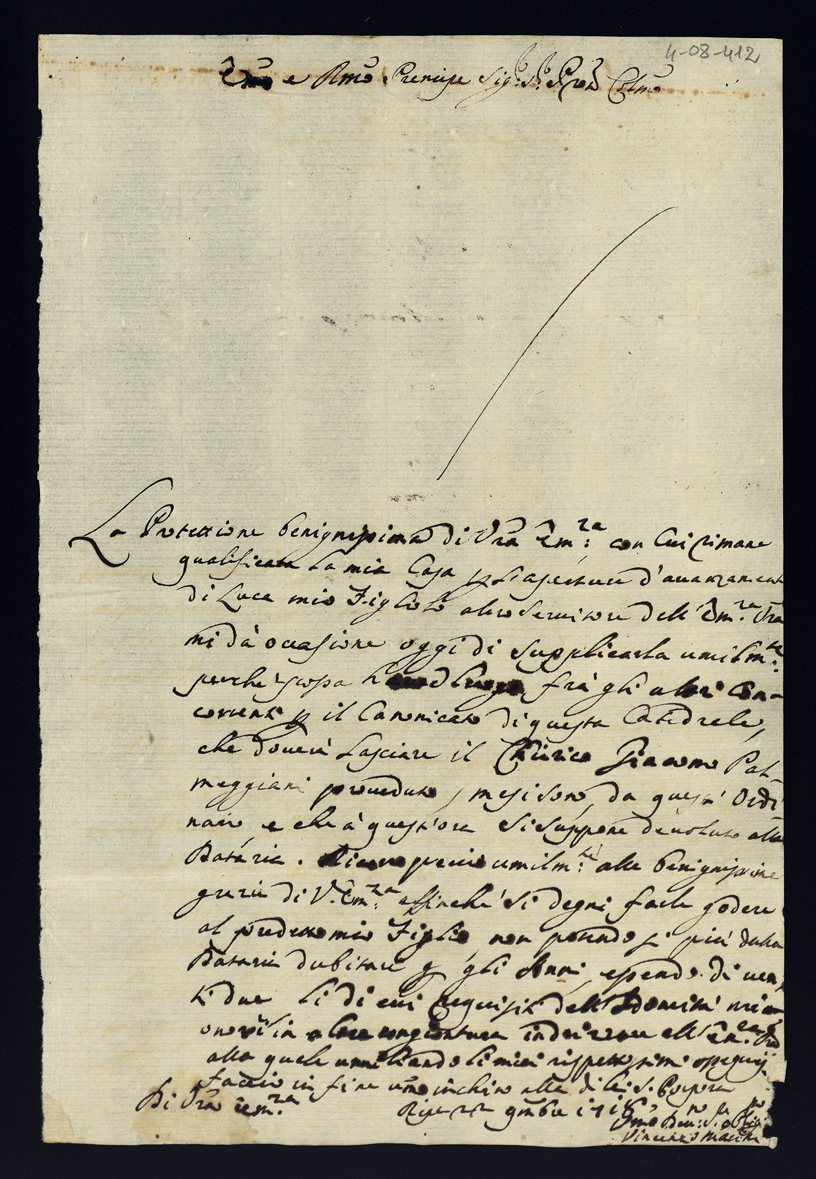 4-08-412
e Rmo Prencipe Sig.r
La Protettione benignissima di Vrã Em.za con cui rimane
qualificata la mia Casa d'avanzament
di Luca mio Figliolo altro Servitore dell'Em.za Vrã
mi dà occasione oggi di supplicarla umilm.te
perche possa frà gli altri Con-
correnti p il Canonicato di questa Catedrale,
che doverà lasciare il Chierico Giacomo Pal-
meggiani proveduto, mesi sono, da quest' Ordi
nario e che à quest'ora si suppone devoluto alla
Dataria. umilm.te alla benignissima
gratia di V. Em.za affinche si degni farlo godere
al predetto mio Figlio non potendosi più dalla
Dataria dubitare p gli Anni, essendo di ven
ti due li di cui requisiti dell'Idoneità
in altra congiontura all'Em.za Vrã
alla quale umiliando li miei rispettosissimi ossequij
faccio in fine umo inchino alla di lei S. Porpora
Di Vrã Em.za
22 9mbre
Vmo
Vincenzo